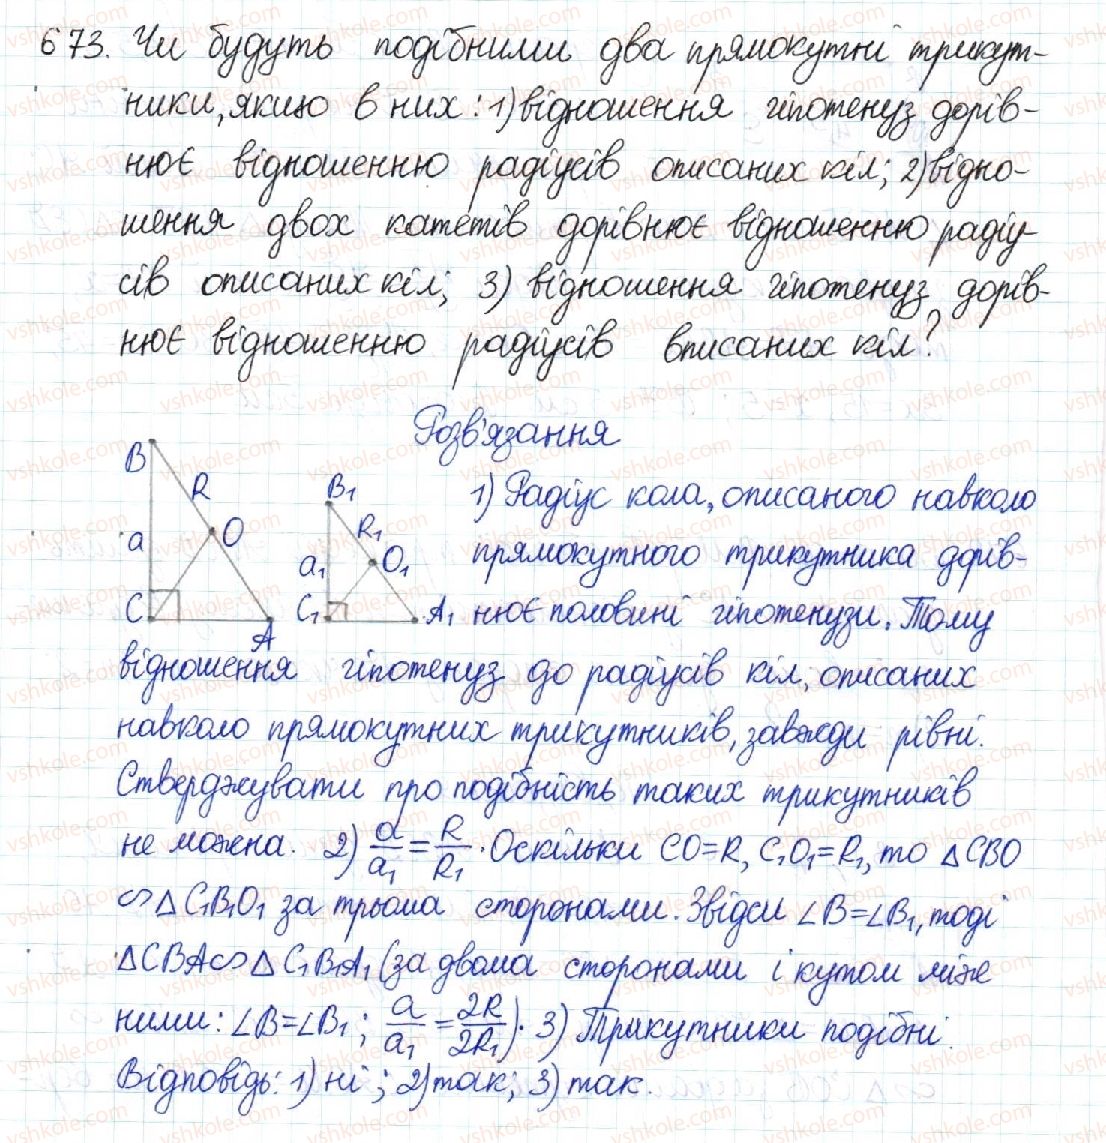 673. Чи будуть подібними два прямокутні трикут-
ники, якщо в них: 1) відношення гіпотенуз дорів-
нює відношенню радіусів описаних кіл; 2) відно-
шення двох катетів дорівнює відношенню радіу-
сів описаних кіл; 3) відношення гіпотенуз дорів-
нює відношенню радіусів вписаних кіл?
Розв'язання
B
R
a
O
C
A
B₁
R₁
a₁
O₁
C₁
A₁
1) Радіус кола, описаного навколо
прямокутного трикутника дорів-
нює половині гіпотенузи. Тому
відношення гіпотенуз до радіусів кіл, описаних
навколо прямокутних трикутників, завжди рівні.
Стверджувати про подібність таких трикутників
не можна. 2) a/a₁ = R/R₁. Оскільки CO=R, C₁O₁=R₁, то △CBO
∽ △C₁B₁O₁ за трьома сторонами. Звідси ∠B=∠B₁, тоді
△CBA ∽ △C₁B₁A₁ (за двома сторонами і кутом між
ними: ∠B=∠B₁; a/a₁ = 2R/2R₁). 3) Трикутники подібні.
Відповідь: 1) ні; 2) так; 3) так.